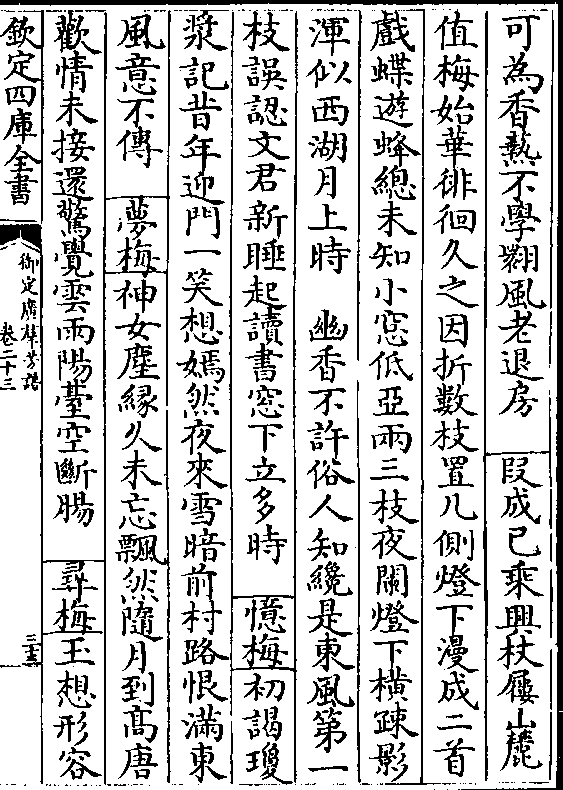 可為香熱不學翾風老退房　段成己乘興杖屨山麓
值梅始華徘徊久之因折數枝置几側燈下漫成二首
戲蝶遊蜂總未知小窓低亞兩三枝夜闌燈下横疎影
渾似西湖月上時　幽香不許俗人知纔是東風第一
枝誤認文君新睡起讀書窓下立多時　憶梅初謁瓊
漿記昔年迎門一笑想嫣然夜來雪暗前村路恨滿東
風意不傳　夢梅神女塵緣久未忘飄然隨月到髙唐
歡情未接還驚覺雲雨陽臺空斷腸　尋梅玉想形容
欽定四庫全書
御定廣羣芳譜
卷二十三
三十三